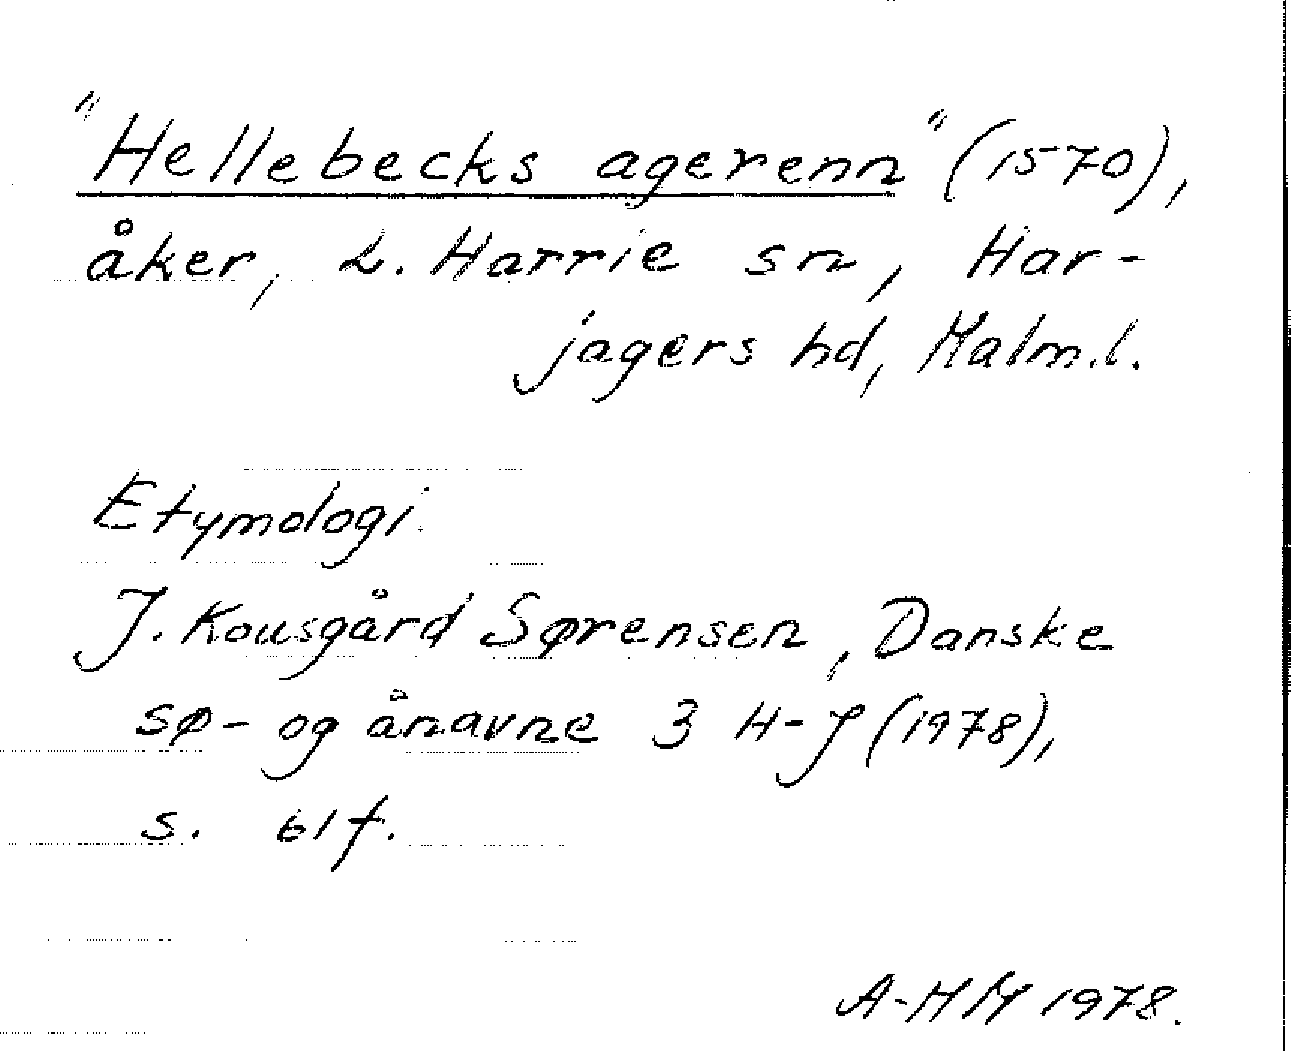 "Hellebecks agerenn" (1570),
åker, L. Harrie sn, Har-
jagers hd, Malm.l.
Etymologi.
J. Kousgård Sørensen, Danske
sø- og ånavne 3 H-J (1978),
s. 61 f.
A-HM 1978.